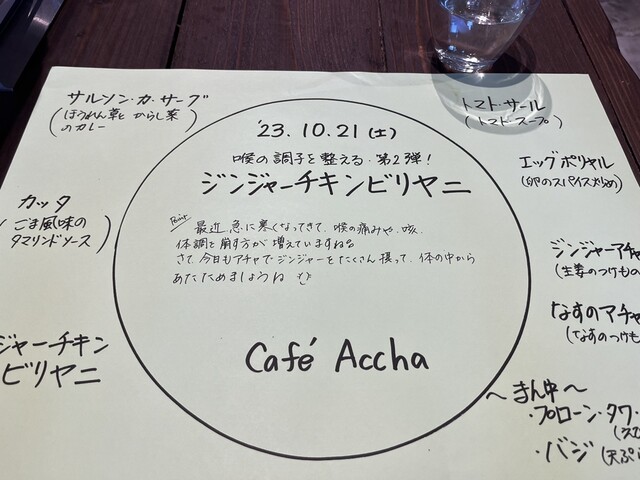 サルソン・カ・サーグ
(ほうれん草と からし菜
のカレー)
カッタ
(ごま風味の
タマリンドソース)
ジャーチキン
ビリヤニ
'23.10.21(土)
喉の調子を整える・第2弾!
ジンジャーチキンビリヤニ
Point 最近、急に寒くなってきて、喉の痛みや、咳、
体調を崩す方が増えていますね。
さて、今日もアチャでジンジャーをたくさん摂って、体の中から
あたためましょうね
Café Accha
トマト・サール
(トマトスープ)
エッグポリヤル
(卵のスパイス炒め)
ジンジャーアチャ
(生姜のつけもの
なすのアチャ
(なすのつけも
〜まん中〜
・プローン・タワ・
(えび
・バジ(天ぷら